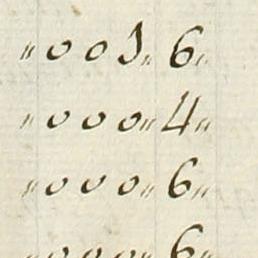 〃 0 0 1 〃 6 〃
〃 0 0 0 〃 4 〃
〃 0 0 0 〃 6 〃
〃 0 0 0 〃 6 〃